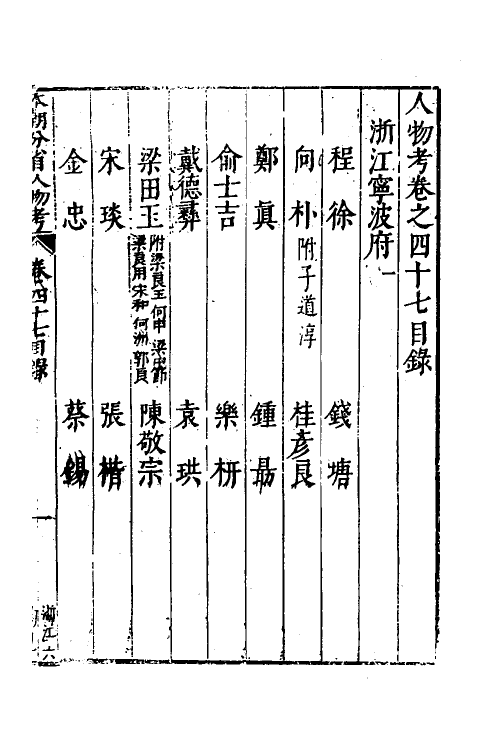 人物考卷之四十七目錄
浙江寧波府一
程徐 錢塘
向朴附子道淳 桂彥良
鄭眞 鍾勗
俞士吉 樂枅
戴德彝 袁珙
梁田玉附梁良玉何申梁中節梁良用宋和何洲郭良 陳敬宗
宋琰 張楷
金忠 蔡錫
本朝分省人物考 卷四十七目錄 一 浙江六